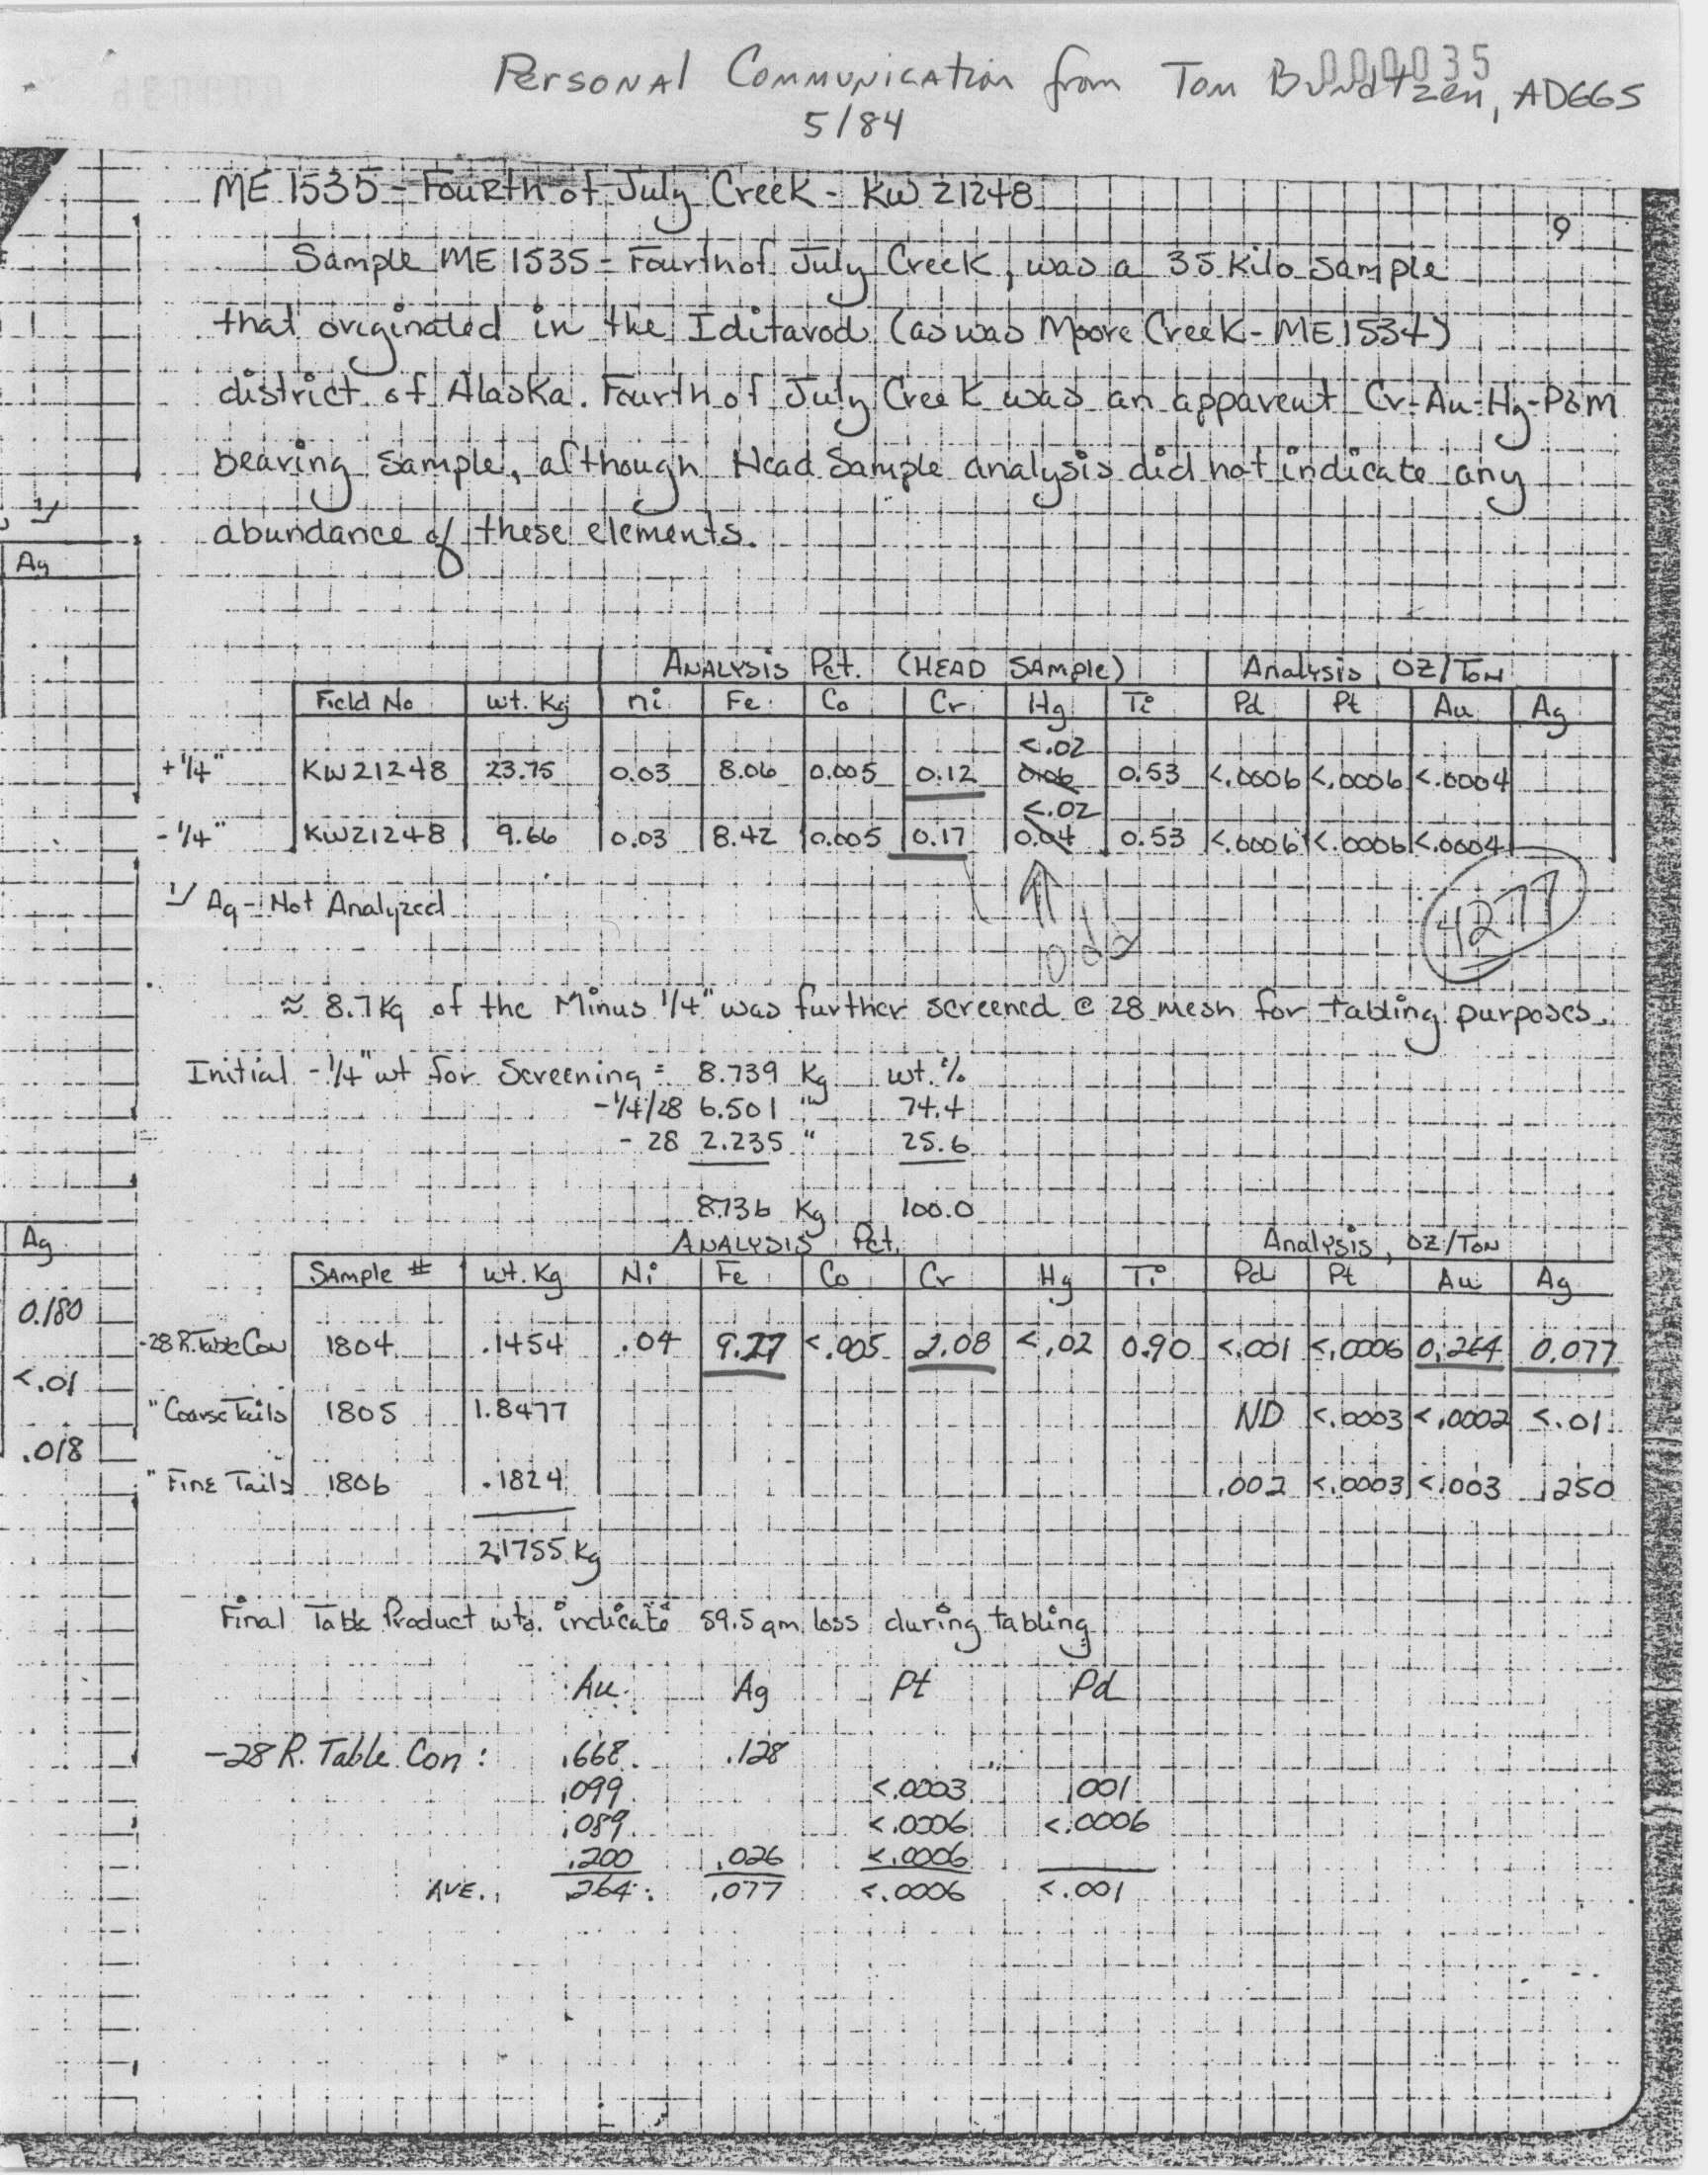 000035
Personal Communication from Tom Bundtzen, ADGGS
5/84
ME 1535 - Fourth of July Creek - KW 21248
9
Sample ME 1535 - Fourth of July Creek, was a 35 Kilo sample
that originated in the Iditarod (as was Moore Creek - ME 1534)
district of Alaska. Fourth of July Creek was an apparent Cr-Au-Hg-PGM
bearing sample, although Head Sample analysis did not indicate any
abundance of these elements.
1/
Ag
ANALYSIS Pct. (HEAD SAMple) Analysis, OZ/TON
Field No wt. Kg ni Fe Co Cr Hg Ti Pd Pt Au Ag
<.02
+1/4" KW21248 23.75 0.03 8.06 0.005 0.12 0.06 0.53 <.0006 <.0006 <.0004
<.02
-1/4" KW21248 9.66 0.03 8.42 0.005 0.17 0.04 0.53 <.0006 <.0006 <.0004
1/ Ag - Not Analyzed
4277
≈ 8.7 Kg of the Minus 1/4" was further screened @ 28 mesh for tabling purposes.
Initial -1/4" wt for Screening = 8.739 Kg wt. %
-1/4/28 6.501 " 74.4
- 28 2.235 " 25.6
8.736 Kg 100.0
Ag
ANALYSIS Pct. Analysis, OZ/TON
SAMple # wt. Kg Ni Fe Co Cr Hg Ti Pd Pt Au Ag
0.180
-28 R. Table Con 1804 .1454 .04 9.77 <.005 2.08 <.02 0.90 <.001 <.0006 0.264 0.077
<.01
" Coarse Tails 1805 1.8477 ND <.0003 <.0002 <.01
.018
" Fine Tails 1806 .1824 .002 <.0003 <.003 .250
2.1755 Kg
Final Table Product wts. indicate 59.5 gm loss during tabling
Au Ag Pt Pd
-28 R. Table Con: .668 .128
.099 <.0003 .001
.089 <.0006 <.0006
.200 .026 <.0006
AVE. .264 .077 <.0006 <.001